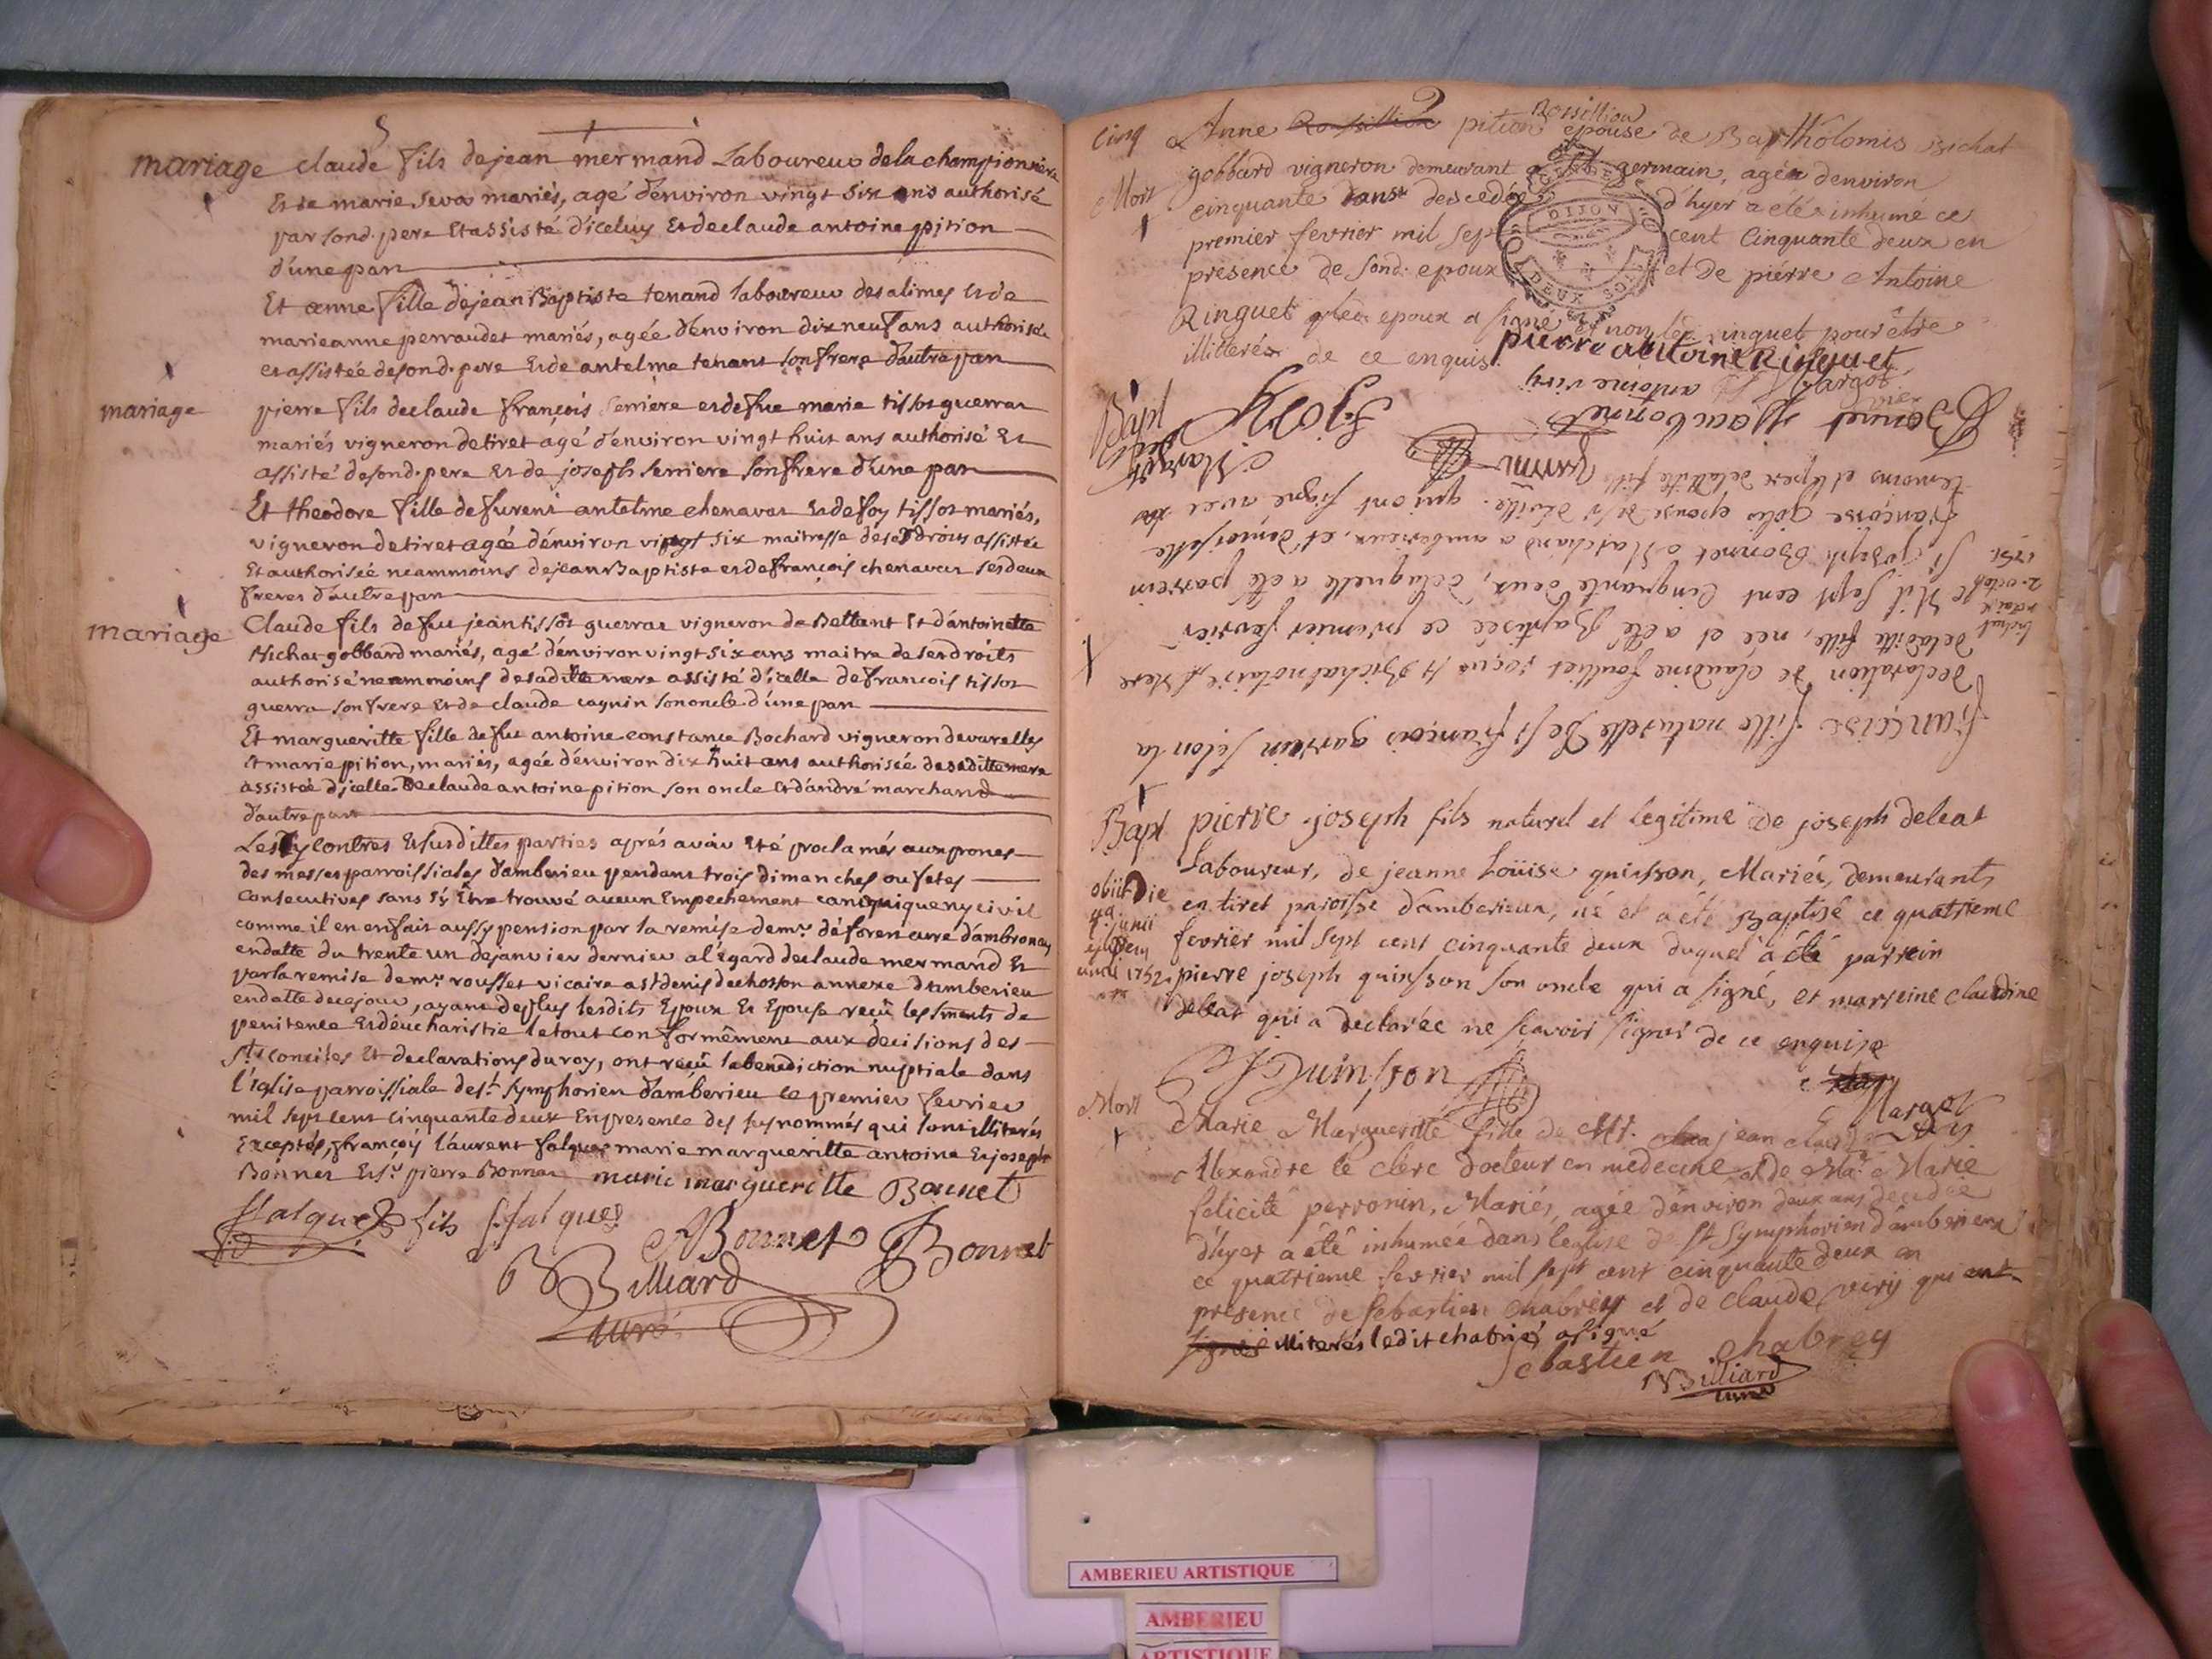 5
mariage claude fils de jean mermand Laboureur de la championniere
Et de marie seva mariés, agé d'environ vingt six ans authorisé
par sond. pere Et assisté d'iceluy Et de claude antoine pition
d'une part
Et anne fille de jean Baptiste tenand laboureur des alimes et de
marieanne perraudet mariés, agée d'environ dix neuf ans authorisée
et assistée de sond. pere Et de antelme tenant son frere d'autre part
mariage pierre fils de claude françois serriere et de fue marie tissot guerraz
mariés vigneron de tiret agé d'environ vingt huit ans authorisé Et
assisté de sond. pere Et de joseph serriere son frere d'une part
Et theodore fille de furent antelme chenavar Et de foy tissot mariés,
vigneron de tiret agée d'environ vingt six maitresse de ses droits assistée
Et authorisée neammoins de jean Baptiste et de françois chenavar ses deux
freres d'autre part
mariage Claude fils de fu jean tissot guerraz vigneron de Bettant Et d'antoinette
Bichat gobbard mariés, agé d'environ vingt six ans maitre de ses droits
authorisé neammoins de sa ditte mere assisté d'icelle de françois tissot
guerra son frere Et de claude cagnin son oncle d'une part
Et margueritte fille de fu antoine constance Bochard vigneron de varelles
Et marie pition, mariés, agée d'environ dix huit ans authorisée de sa ditte mere
assistée d'icelle De claude antoine pition son oncle Et d'andré marchand
d'autre part
Les cy contres Et susdittes parties aprés avoir Eté proclamés aux prones
des messes parroissiales d'amberieu pendant trois dimanches ou fetes
Consecutives sans s'y Etre trouvé aucun Empechement canonique ny civil
comme il en en fait aussy pension par la remise de mr. déforen curé d'ambronay
en datte du trente un de janvier dernier a l'égard de claude mermand Et
par la remise de mr. rousset vicaire a st denis de chosson annexe d'amberieu
en datte de ce jour, ayant de plus lesdits Epoux Et Epouse reçu les sments de
penitence Et d'eucharistie le tout conformément aux decisions des
sts. conciles Et declarations du roy, ont reçû la benediction nuptiale dans
l'église parroissiale de st. symphorien d'amberieu le premier fevrier
mil sept cent cinquante deux En presence des susnommés qui sont illiterés
Exceptés, françois laurent falques marie margueritte antoine Et joseph
Bonnet Et sr. pierre Bonnet marie margueritte Bonnet
ffalques fils f. falques
A Bonnet J Bonnet
B Billiard
curé
Cinq Anne pition Rossillion epouse de Barthelomis Bichat
Mort gobbard vigneron demeurant a St germain, agéa denviron
cinquante ans descedée d'hyer a étés inhumé ce
premier fevrier mil sept cent Cinquante deux en
presence de sond. epoux et de piérre Antoine
Ringuet qled. epoux a signé et non led. ringuet pour être
illiterés de ce enquis. pierre antoine Ringuet
DIJON
DEUX SO
Bapt Françoise fille naturelle De Sr françois garrein selon la
declaration de claudine foulliet reçue Sr Bichat notaire, Mere
de laditte fille, née et a été Baptisée ce premier fevrier
Mil sept cent Cinquante deux, de laquelle a été parrein
Sr. joseph Bonnet Marchand a amberieux, et demoiselle
françoise Gelis epouse de Sr deville. qui ont signé avec
temoins et le pere de laditte fille
Bonnet Isaac bonnet
antoine viry
F. joly
Margot
Bapt pierre joseph fils naturel et legitime De joseph deleat
Laboureur, de jeanne Loüise quinsson, Mariés, demeurants
obiit Die en tiret paroisse d'amberieux, né et a été Baptisé ce quatrieme
4a junii fevrier mil sept cent cinquante deux duquel a été parrein
1752 pierre joseph quinsson son oncle qui a signé, et marreine claudine
deleat qui a declarée ne scavoir signer de ce enquise
P J Quinsson
Margot
Mort Marie Marguerite fille de Mr. jean claude
Alexandre le clerc Docteur en medecine et de Ma. Marie
felicité perronin, Mariés, agée d'environ deux ans decedée
d'hyer a été inhumée dans l'eglise de St Symphorien d'amberieux
ce quatrieme fevrier mil sept cent cinquante deux en
presence de sebastien chabrey et de claude very qui ont
signés illiterés ledit chabrey a signé
Sebastien chabrey
B Billiard
curé
AMBERIEU ARTISTIQUE
AMBERIEU
ARTISTIQUE